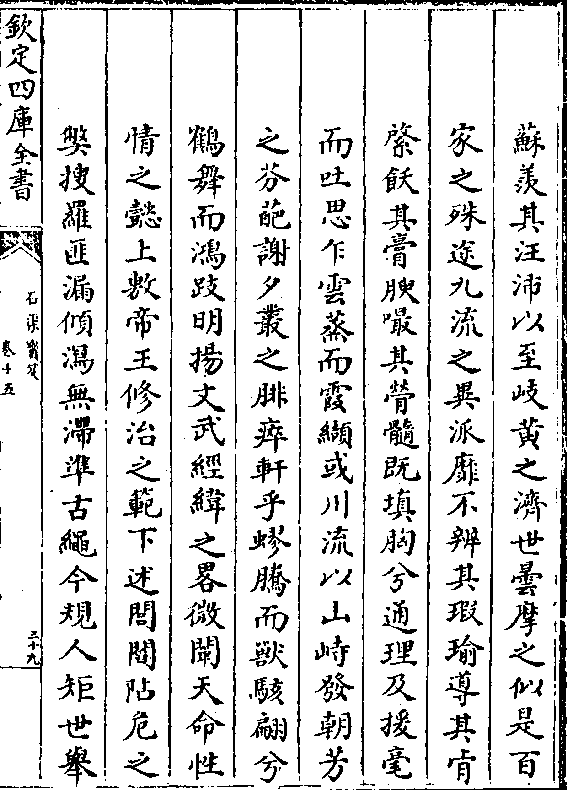 蘇羨其汪沛以至岐黄之濟世曇摩之似是百
家之殊途九流之異派靡不辨其瑕瑜導其肯
綮飫其膏腴嘬其膋髓既填胸兮通理及援毫
而吐思乍雲蒸而霞纈或川流以山峙發朝芳
之芬葩謝夕叢之腓瘁軒乎蟉騰而獸駭翩兮
鶴舞而鴻跂明揚文武經緯之畧微闡天命性
情之懿上敷帝王修治之範下述閭閻阽危之
獘搜羅匪漏傾瀉無滯準古繩今規人矩世舉
欽定四庫全書
石渠寳笈
卷十五
三十九